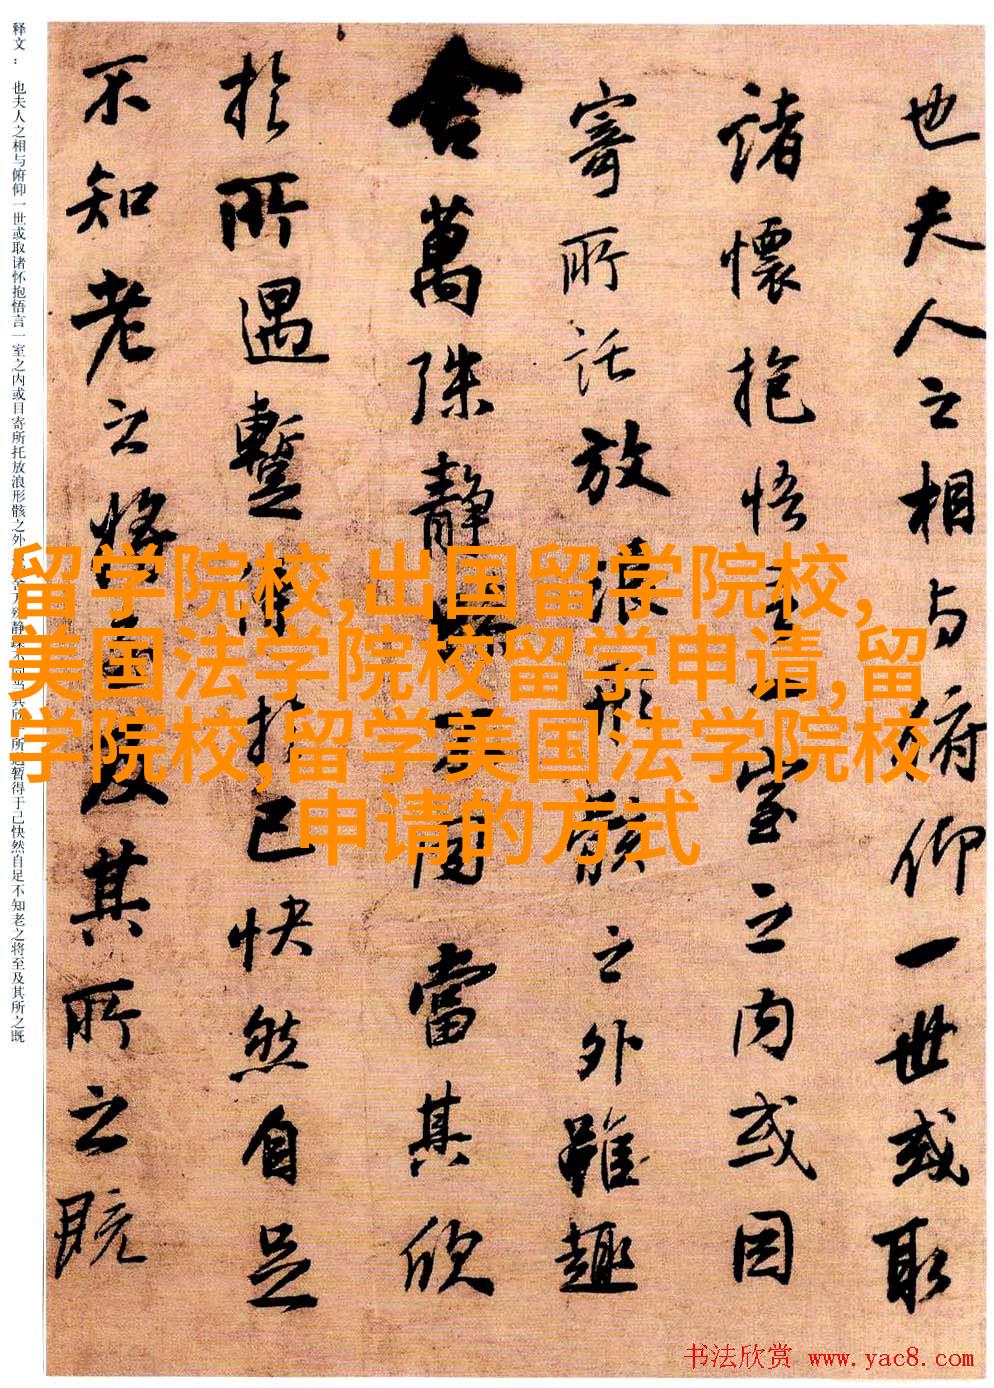 也夫人之相与俯仰一世或取
諸懷抱悟言一室之内或因
寄所託放浪形骸之外雖趣
舍萬殊静躁不同當其欣
於所遇暫得於己快然自足
不知老之將至及其所之既
释文： 也夫人之相与俯仰一世或取诸怀抱悟言一室之内或目寄所托放浪形骸之外 静 其欣 所 暂得于己快然自足不知老之将至及其所之既
留学院校,出国留学院校,
美国法学院校留学申请,留
学院校,留学美国法学院校
申请的方式
书法欣赏 www.yac8.com